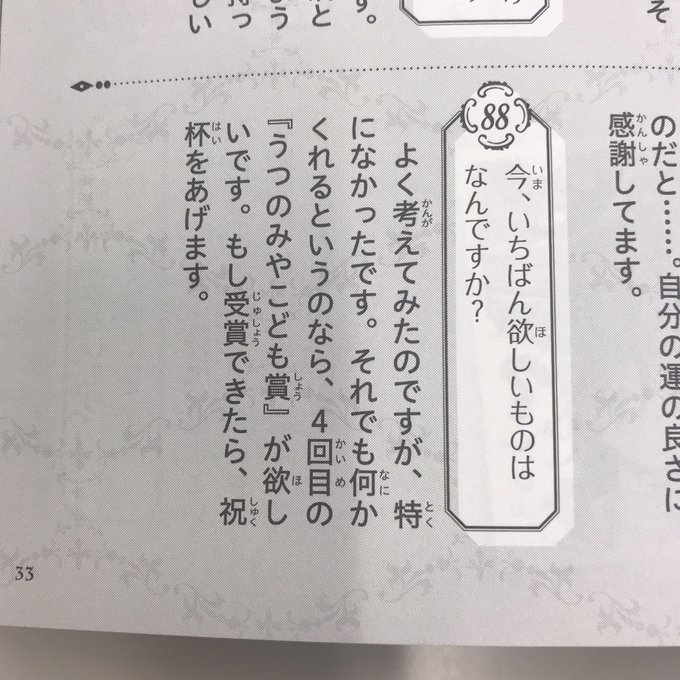 のだと……。自分の運の良さに
感謝してます。
88
今、いちばん欲しいものは
なんですか?
よく考えてみたのですが、特
になかったです。それでも何か
くれるというのなら、4回目の
『うつのみやこども賞』が欲し
いです。もし受賞できたら、祝
杯をあげます。
33